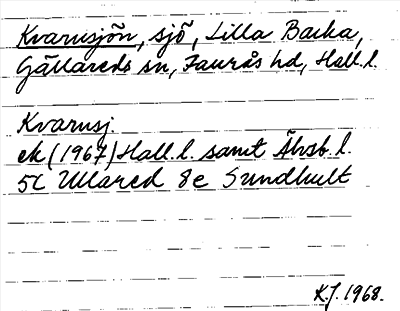 Kvarnsjön, sjö, Lilla Backa,
Gällareds sn, Faurås hd, Hall.l.
Kvarnsj.
ek (1967) Hall.l. samt Älvsb. l.
5C Ullared 8e Sundhult
K.J. 1968.